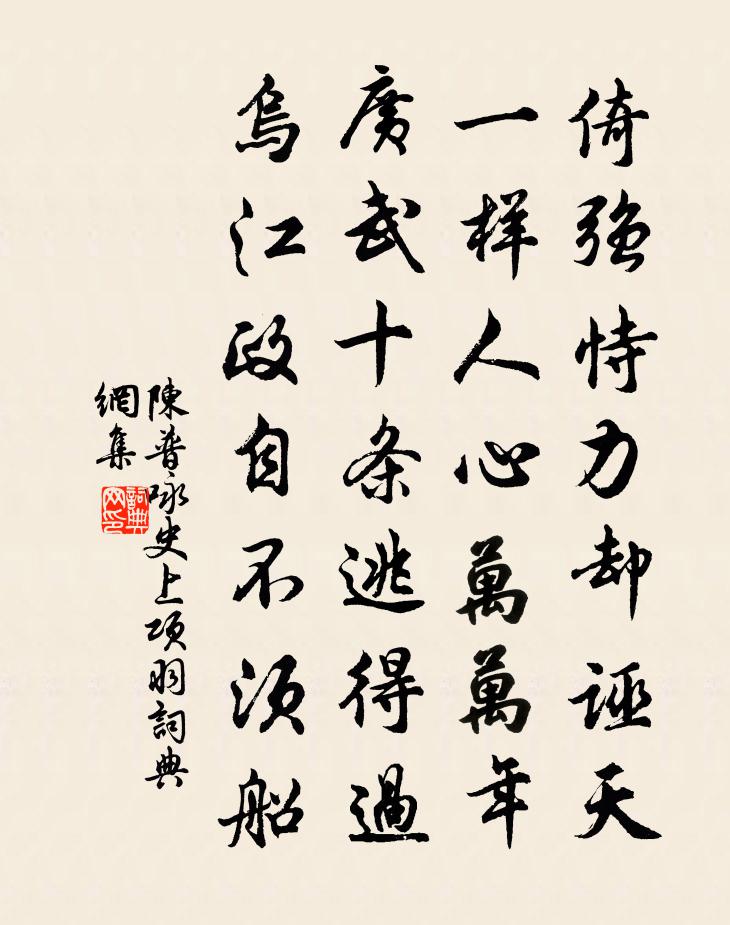 倚強恃力却誣天
一样人心萬萬年
廣武十条逃得過
烏江政自不須船
陳普詠史上項羽詞典
網集
詞典
网印